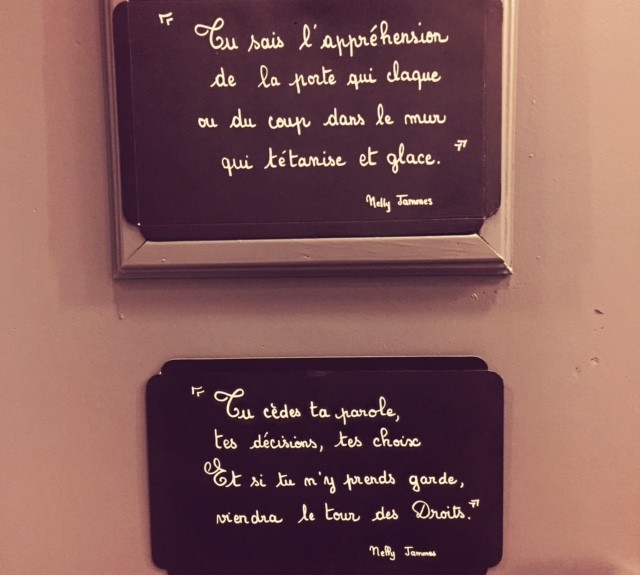 « Tu sais l'appréhension
de la porte qui claque
ou du coup dans le mur
qui tétanise et glace. »
Nelly Jammes
« Tu cèdes ta parole,
tes décisions, tes choix
Et si tu n'y prends garde,
viendra le tour des Droits. »
Nelly Jammes